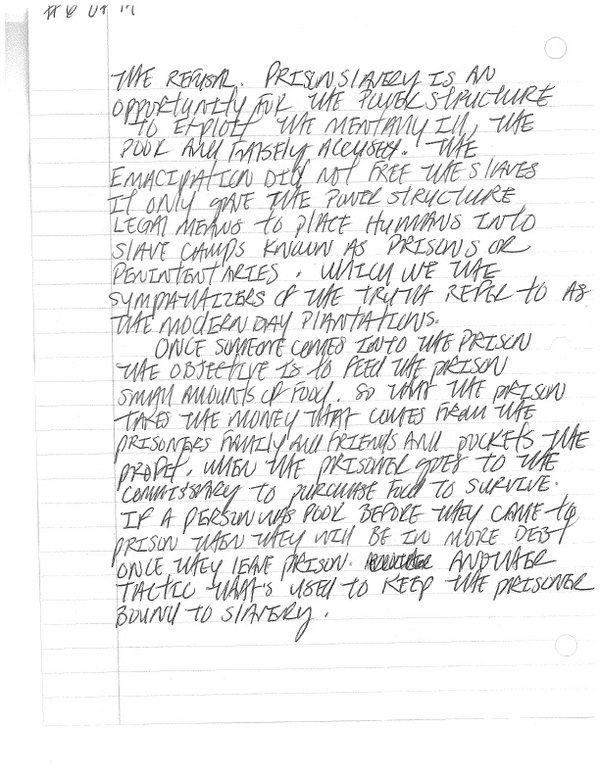 THE REFUSAL. PRISON SLAVERY IS AN
OPPORTUNITY FOR THE POWER STRUCTURE
TO EXPLOIT THE MENTALLY ILL, THE
POOR AND FALSELY ACCUSED. THE
EMACIPATION DID NOT FREE THE SLAVES
IT ONLY GAVE THE POWER STRUCTURE
LEGAL MEANS TO PLACE HUMANS INTO
SLAVE CAMPS KNOWN AS PRISONS OR
PENINTENTARIES. WHICH WE THE
SYMPATHIZERS OF THE TRUTH REFER TO AS
THE MODERN DAY PLANTATIONS.
ONCE SOMEONE COMES INTO THE PRISON
THE OBJECTIVE IS TO FEED THE PRISON
SMALL AMOUNTS OF FOOD. SO THAT THE PRISON
TAKES THE MONEY THAT COMES FROM THE
PRISONERS FAMILY AND FRIENDS AND POCKETS THE
PROFIT, WHEN THE PRISONER GOES TO THE
COMMISSARY TO PURCHASE FOOD TO SURVIVE.
IF A PERSON WAS POOR BEFORE THEY CAME TO
PRISON THEN THEY WILL BE IN MORE DEBT
ONCE THEY LEAVE PRISON. ANOTHER
TACTIC THAT'S USED TO KEEP THE PRISONER
BOUND TO SLAVERY.